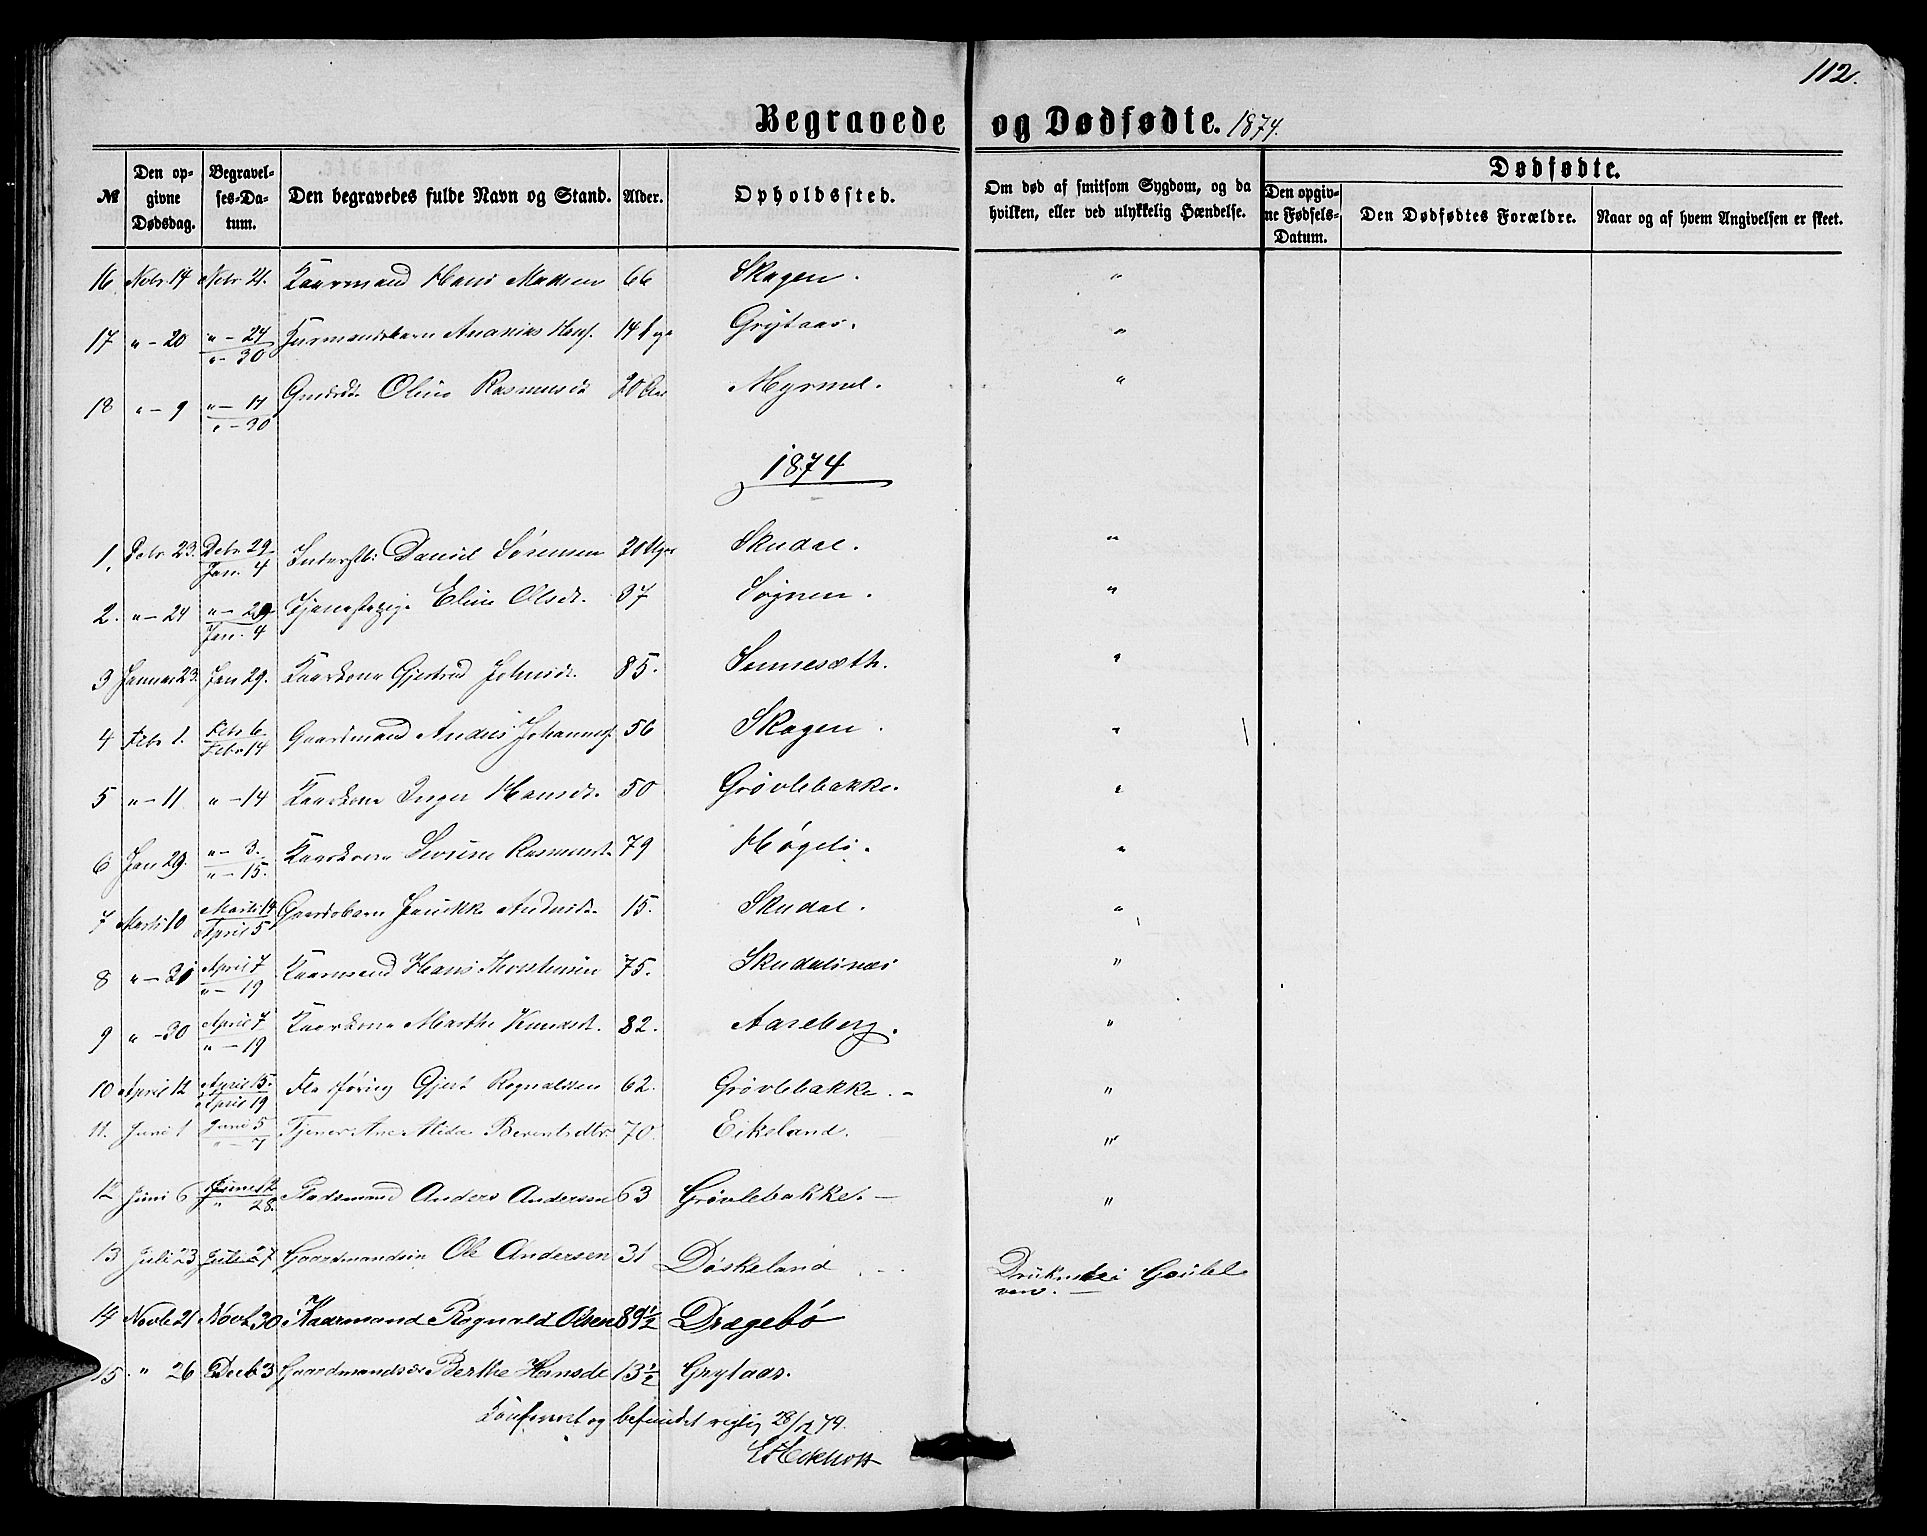 112.
Begravede og Dødfødte. 1874.
№ Den opgivne Dødsdag. Begravelses-Datum. Den begravedes fulde Navn og Stand. Alder. Opholdssted. Om død af smitsom Sygdom, og da hvilken, eller ved ulykkelig Hændelse. Dødfødte. Den opgivne Fødsels-Datum. Den Dødfødtes Forældre. Naar og af hvem Angivelsen er skeet.
16 Novbr 14 Novbr 21. Kaarmand Hans Madsen 66 Skagen. "
17 " - 20 " - 24 " - 30 Ananias 14 Grytaas. "
18 " - 9 " - 17 " - 30 Oline Rasmusd 20 Myrmel. "
1874
1. Debr 23. Debr 29. Jan. 4 Daniel Sørensen 20 Skudal. "
2. " - 24 " - 29 Jan. 4 Tjenestepige Eline Olsd. 37 Søjnen. "
3 Januar 23. Jan 29. Kaarkone Gjertrud Johnsd. 85. Sunnesæth. "
4 Febr 1. Febr 6. Febr 14 Gaardmand Anders Johannes. 56 Skagen. "
5 " - 11 " - 14 Kaarkone Inger Hansd. 50 Grøvlebakke. "
6 Jan 29. " - 3. " - 15. Kaarkone Severine Rasmusd. 79 Høgeli. "
7 Marts 10 Marts 14 April 5 Gaardbarn Andersd. 15. Skudal. "
8 " - 31 April 7 " - 19 Kaarmand Hans Thorstensen 75. Skudalsnæs "
9 " - 30 April 7 " - 19 Kaarkone Marthe Knudsd. 82. Aareberg. "
10 April 12 April 15. April 19 Gjert Rognaldsen 62. Grøvlebakke. - "
11. Juni 1 Juni 5 " - 7 Tjener Ane Alida Berentsdtr. 70 Eikeland. "
12 Juni 6 Juni 12 " 28. Pladsmand Anders Andersen 63 Grøvlebakke. - "
13 Juli 23 Juli 27 Gaardmandssøn Ole Andersen 31 Døskeland Druknede i Gaulelven. -
14 Novbr 21 Novbr 30 Kaarmand Rognald Olsen 89½ Drægebø
15 " 26 Decb 3 Gaardmandsd Berthe Hansdt 13½ Grytaas.
Konfereret og befundet rigtig 28/12 79.
Eckhoff